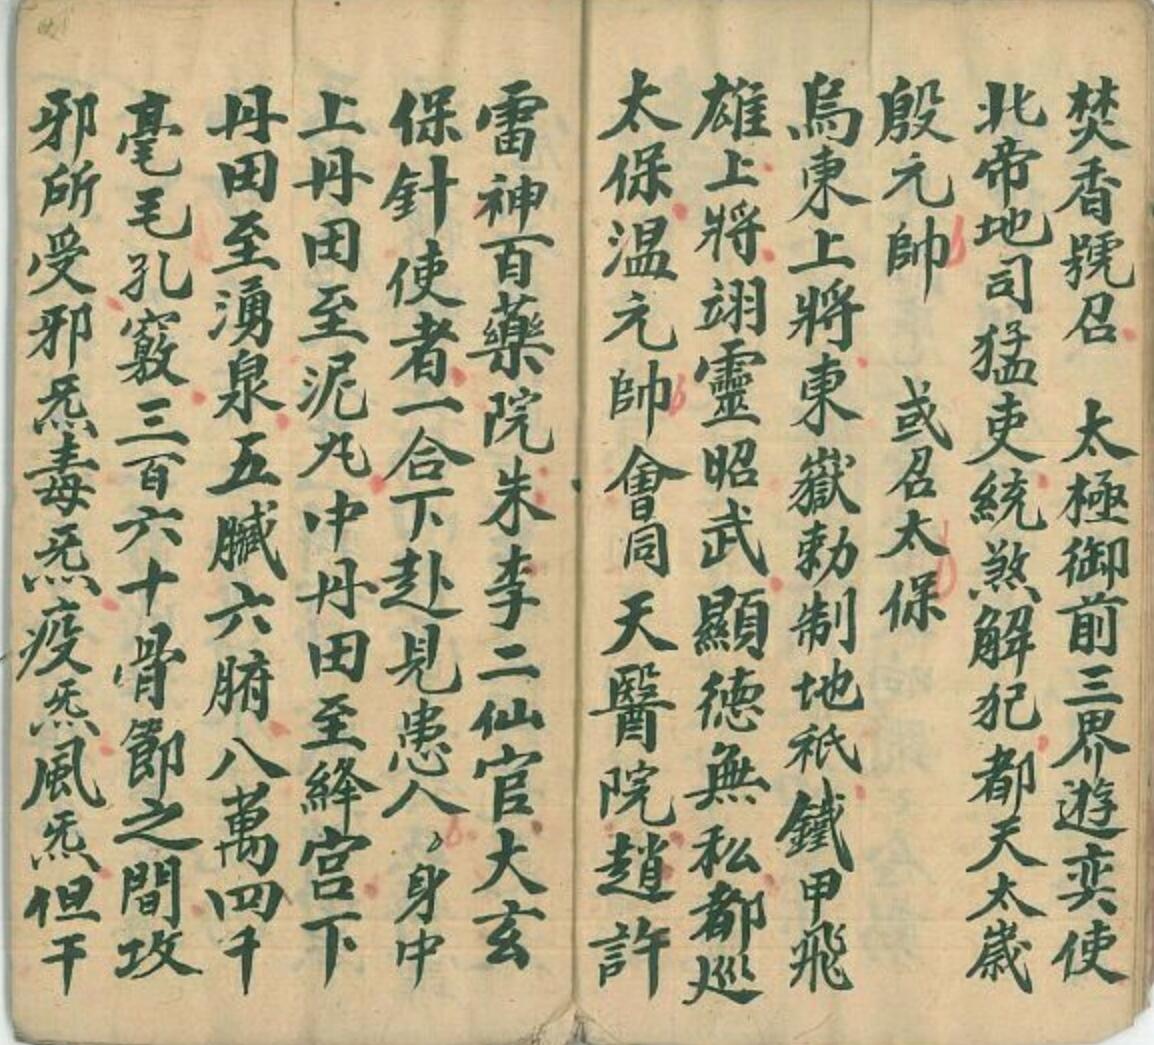 焚香號召　太極御前三界遊奕使
北帝地司猛吏統煞解犯都天太歲
殷元帥　或召太保
烏東上將東嶽勅制地祇鐵甲飛
雄上將翊靈昭武顯德無私都巡
太保温元帥會同天醫院趙許
雷神百藥院朱李二仙官大玄
保針使者一合下赴見患人身中
上丹田至泥丸中丹田至絳宫下
丹田至湧泉五臟六腑八萬四千
毫毛孔竅三百六十骨節之間攻
邪所受邪炁毒炁疫炁風炁但干